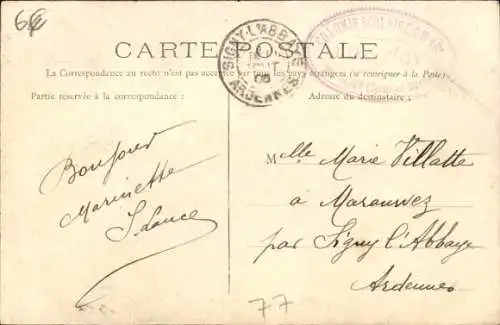 6€
CARTE POSTALE
La Correspondance au recto n'est pas acceptée par tous les pays étrangers (se renseigner à la Poste)
Partie réservée à la correspondance :
Adresse du destinataire :
SIGNY-L'ABBAYE
ARDENNES
Bonjour
Marinette
Melle Marie Villatte
à Maranwez
par Signy l'Abbaye
Ardennes
77